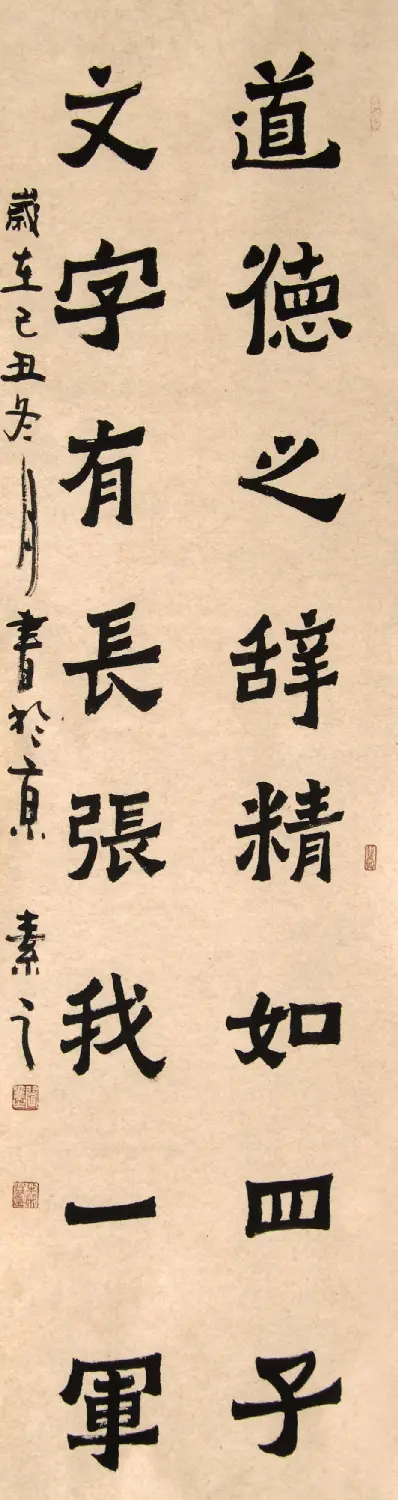 道德之辞精如四子
文字有長張我一軍
歲在己丑冬月書於京 素之